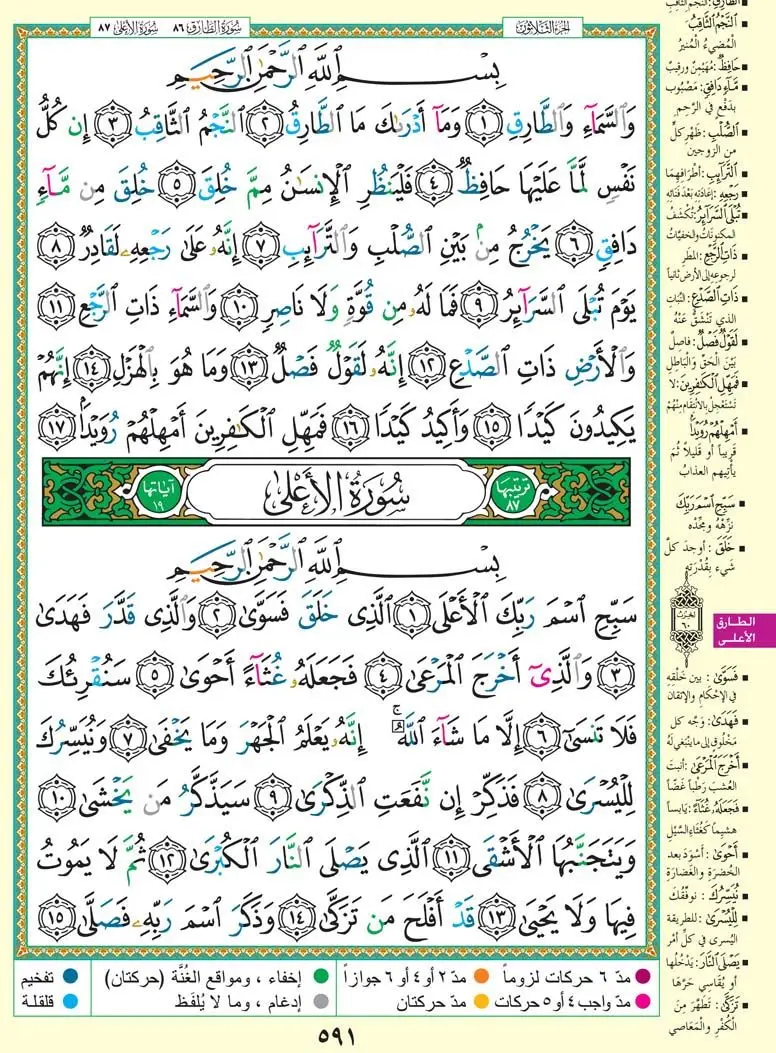 الجزء الثلاثون
سورة الطارق ٨٦ سورة الأعلى ٨٧
بِسْمِ ٱللَّهِ ٱلرَّحْمَٰنِ ٱلرَّحِيمِ
وَٱلسَّمَآءِ وَٱلطَّارِقِ ١ وَمَآ أَدْرَىٰكَ مَا ٱلطَّارِقُ ٢ ٱلنَّجْمُ ٱلثَّاقِبُ ٣ إِن كُلُّ
نَفْسٍ لَّمَّا عَلَيْهَا حَافِظٌ ٤ فَلْيَنظُرِ ٱلْإِنسَٰنُ مِمَّ خُلِقَ ٥ خُلِقَ مِن مَّآءٍ
دَافِقٍ ٦ يَخْرُجُ مِنۢ بَيْنِ ٱلصُّلْبِ وَٱلتَّرَآئِبِ ٧ إِنَّهُۥ عَلَىٰ رَجْعِهِۦ لَقَادِرٌ ٨
يَوْمَ تُبْلَى ٱلسَّرَآئِرُ ٩ فَمَا لَهُۥ مِن قُوَّةٍ وَلَا نَاصِرٍ ١٠ وَٱلسَّمَآءِ ذَاتِ ٱلرَّجْعِ ١١
وَٱلْأَرْضِ ذَاتِ ٱلصَّدْعِ ١٢ إِنَّهُۥ لَقَوْلٌ فَصْلٌ ١٣ وَمَا هُوَ بِٱلْهَزْلِ ١٤ إِنَّهُمْ
يَكِيدُونَ كَيْدًا ١٥ وَأَكِيدُ كَيْدًا ١٦ فَمَهِّلِ ٱلْكَٰفِرِينَ أَمْهِلْهُمْ رُوَيْدًۢا ١٧
ترتيبها ٨٧ سُورَةُ الأَعْلَىٰ آياتها ١٩
بِسْمِ ٱللَّهِ ٱلرَّحْمَٰنِ ٱلرَّحِيمِ
سَبِّحِ ٱسْمَ رَبِّكَ ٱلْأَعْلَى ١ ٱلَّذِى خَلَقَ فَسَوَّىٰ ٢ وَٱلَّذِى قَدَّرَ فَهَدَىٰ
٣ وَٱلَّذِىٓ أَخْرَجَ ٱلْمَرْعَىٰ ٤ فَجَعَلَهُۥ غُثَآءً أَحْوَىٰ ٥ سَنُقْرِئُكَ
فَلَا تَنسَىٰٓ ٦ إِلَّا مَا شَآءَ ٱللَّهُ ۚ إِنَّهُۥ يَعْلَمُ ٱلْجَهْرَ وَمَا يَخْفَىٰ ٧ وَنُيَسِّرُكَ
لِلْيُسْرَىٰ ٨ فَذَكِّرْ إِن نَّفَعَتِ ٱلذِّكْرَىٰ ٩ سَيَذَّكَّرُ مَن يَخْشَىٰ ١٠
وَيَتَجَنَّبُهَا ٱلْأَشْقَى ١١ ٱلَّذِى يَصْلَى ٱلنَّارَ ٱلْكُبْرَىٰ ١٢ ثُمَّ لَا يَمُوتُ
فِيهَا وَلَا يَحْيَىٰ ١٣ قَدْ أَفْلَحَ مَن تَزَكَّىٰ ١٤ وَذَكَرَ ٱسْمَ رَبِّهِۦ فَصَلَّىٰ ١٥
النَّجْمُ الثَّاقِبُ
المُضيءُ المُنيرُ
حَافِظٌ: مُهَيْمِنٌ ورقيبٌ
مَّآءٍ دَافِقٍ: مَصْبُوب
بدَفْعٍ في الرَّحِم
الصُّلْبِ: ظَهْرِ كلٍّ
من الزوجين
التَّرَآئِبِ: أطرافِهِما
رَجْعِهِ: إعادَتِهِ بَعْدَ فَنائِهِ
تُبْلَى السَّرَآئِرُ: تُكشَفُ
المكنوناتُ والخفيّاتُ
ذَاتِ الرَّجْعِ: المطر
لرجوعِهِ إلى الأرض ثانياً
ذَاتِ الصَّدْعِ: النَّبَات
الذي تَنْشَقُّ عَنْهُ
لَقَوْلٌ فَصْلٌ: فاصِلٌ
بَيْنَ الحَقِّ والْباطِلِ
فَمَهِّلِ الْكَافِرِينَ: لا
تَسْتَعْجِلْ بالانْتِقامِ مِنْهُمْ
أَمْهِلْهُمْ رُوَيْدًا
قريباً أو قليلاً ثُمَ
يأتيهم العذابُ
سَبِّحِ اسْمَ رَبِّكَ
نَزِّهْهُ ومَجِّدْهُ
خَلَقَ: أوجدَ كلَّ
شيء بقُدْرَتِهِ
٦٠
الطارق
الأعلى
فَسَوَّىٰ: بين خَلْقِهِ
في الإحْكامِ والإتقانِ
فَهَدَىٰ: وَجَّهَ كلَّ
مَخْلُوقٍ إلى ما ينبغي لَهُ
أَخْرَجَ الْمَرْعَىٰ: أنبتَ
العُشبَ رَطْباً غَضّاً
فَجَعَلَهُ غُثَآءً: يابساً
هشيماً كَغُثاءِ السَّيْلِ
أَحْوَىٰ: أَسْوَدَ بعد
الخُضرَةِ والغَضَارَةِ
نُيَسِّرُكَ: نوفّقُكَ
لِلْيُسْرَىٰ: للطريقة
اليُسرى في كلِّ أمْر
يَصْلَى النَّارَ: يَدْخُلُها
أو يُقَاسِي حَرَّها
تَزَكَّىٰ: تَطَهَّرَ مِنَ
الكُفْرِ والْمَعَاصي
مدّ ٦ حركات لزوماً مدّ ٢ أو ٤ أو ٦ جوازاً إخفاء ، ومواقع الغُنَّة (حركتان) تفخيم
مدّ واجب ٤ أو ٥ حركات مدّ حركتان إدغام ، وما لا يُلفَظ قلقلة
٥٩١